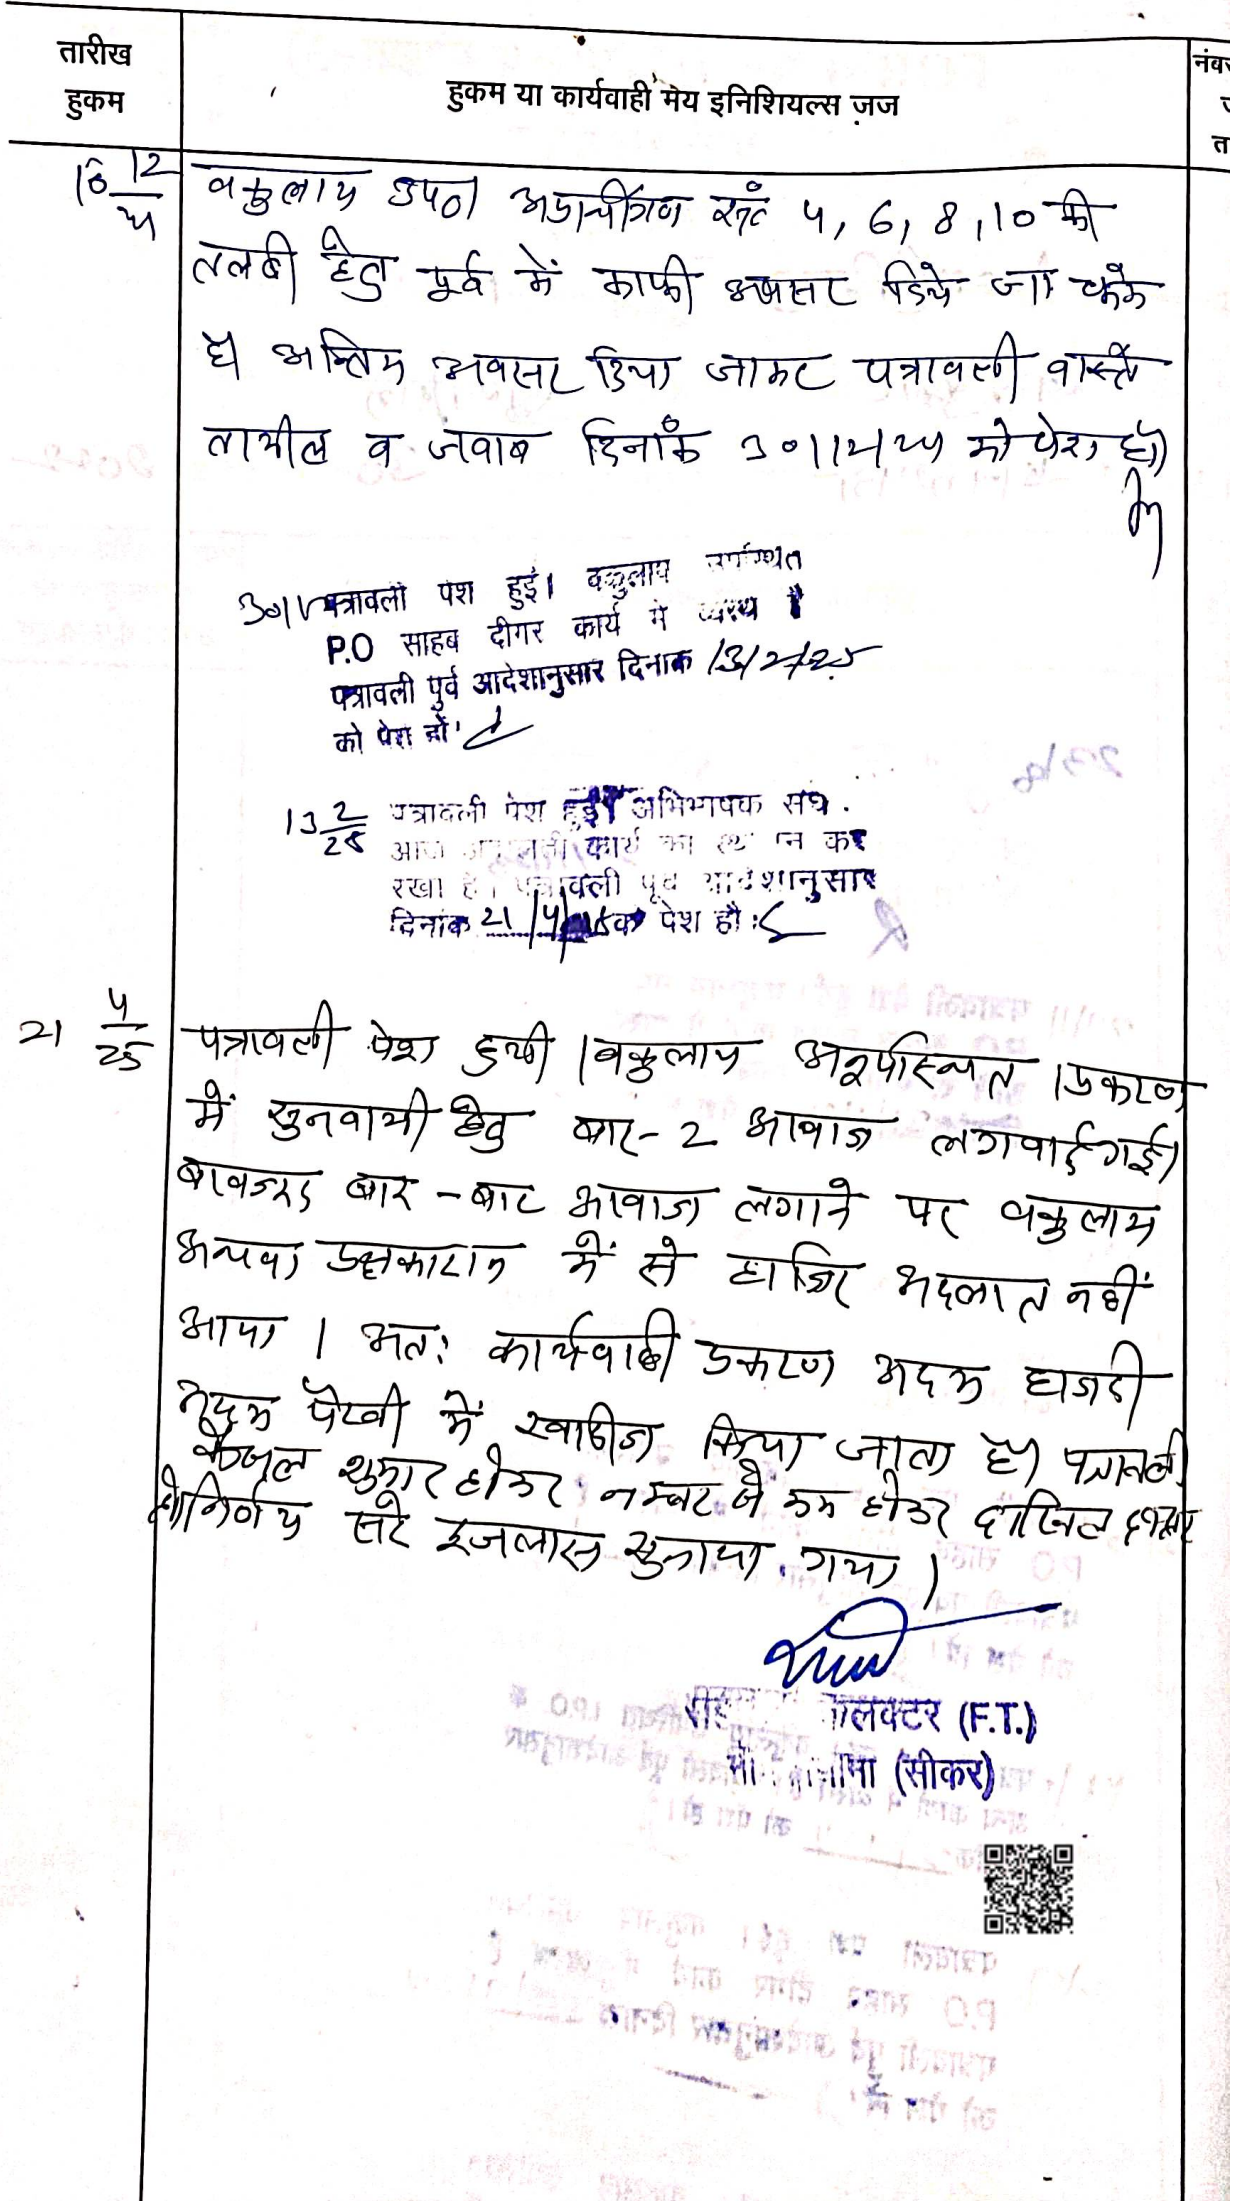 तारीख
हुकम
हुकम या कार्यवाही मय इनिशियल्स जज
नंब
त
16 12
वकुलाय उप0 अप्रार्थीगण सं0 4, 6, 8, 10 की
तलबी हेतु पूर्व में काफी अवसर दिये जा चुके
है अन्तिम अवसर दिया जाकर पत्रावली वास्ते
तामील व जवाब दिनांक 30/12/24 को पेश हो
पत्रावली पेश हुई। वकुलाय उपस्थित
P.O साहब दीगर कार्य में व्यस्त है
पत्रावली पुर्व आदेशानुसार दिनांक 13/2/25
को पेश हों
13 2/25 पत्रावली पेश हुई अभिभाषक संघ
आज कार्य का स्थगन कर
रखा है। पत्रावली पूर्व आदेशानुसार
दिनांक 21/4/25 को पेश हो
21 4/25
पत्रावली पेश हुयी। वकुलाय अनुपस्थित। प्रकरण
में सुनवायी हेतु बार-2 आवाज लगवाई गई।
बावजूद बार-बार आवाज लगाने पर वकुलाय
अथवा पक्षकारान में से हाजिर अदालत नहीं
आया। अतः कार्यवाही प्रकरण अदम हाजरी
अदम पैरवी में खारीज किया जाता है। पत्रावली
फैसल शुमार होकर नम्बर से कम होकर दाखिल दफ्तर
हो। निर्णय सरे इजलास सुनाया गया।
कलक्टर (F.T.)
(सीकर)